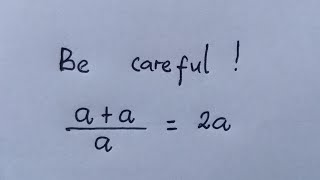 Be careful !
a + a
a
= 2a